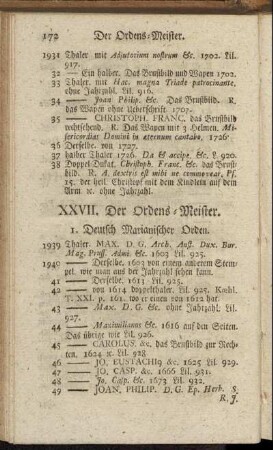 172 Der Ordens-Meister.
1931 Thaler mit Adjutorium nostrum &c. 1702. Lil.
917.
32 — Ein halber. Das Brustbild und Wapen 1702.
33 Thaler mit Hac. magna Triade patrocinante,
ohne Jahrzahl. Lil. 916.
34 — Joan Philip. &c. Das Brustbild. R.
das Wapen ohne Ueberschrift. 1707.
35 — CHRISTOPH. FRANC. das Brustbild
rechtsehend. R. Das Wapen mit 3 Helmen. Mi-
sericordias Domini in æternum cantabo. 1726.
36 Derselbe. von 1727.
37 halber Thaler 1726. Da & accipe. &c. L. 920.
38 Doppel-Dukat. Christoph. Franc. &c. das Brust-
bild. R. A dextris est mihi ne commovear, Ps.
15. der heil. Christoph mit dem Kindlein auf dem
Arm &c. ohne Jahrzahl.
XXVII. Der Ordens-Meister.
1. Deutsch Marianischer Orden.
1939 Thaler. MAX. D. G. Arch. Aust. Dux. Bur.
Mag. Pruss. Admi. &c. 1603 Lil. 925.
1940 — Derselbe. 1603 von einem anderem Stem-
pel, wie man aus der Jahrzahl sehen kann.
41 — Derselbe. 1613. Lil. 925.
42 — von 1614 doppelthaler. Lil. 925. Koehl.
T. XXI. p. 161. wo er einen von 1612 hat.
43 — Max. D. G. &c. ohne Jahrzahl. Lil.
927.
44 — Maximilianus &c. 1616 auf den Seiten.
Das übrige wie Lil. 926.
45 — CAROLUS. &c. das Brustbild zur Rech-
ten. 1624 &c. Lil. 928
46 — JO. EUSTACHI9 &c. 1625 Lil. 929.
47 — JO. CASP. &c. 1666 Lil. 931.
48 — Jo. Casp. &c. 1673 Lil. 932.
49 — JOAN. PHILIP. D. G. Ep. Herb. S.
R. J.